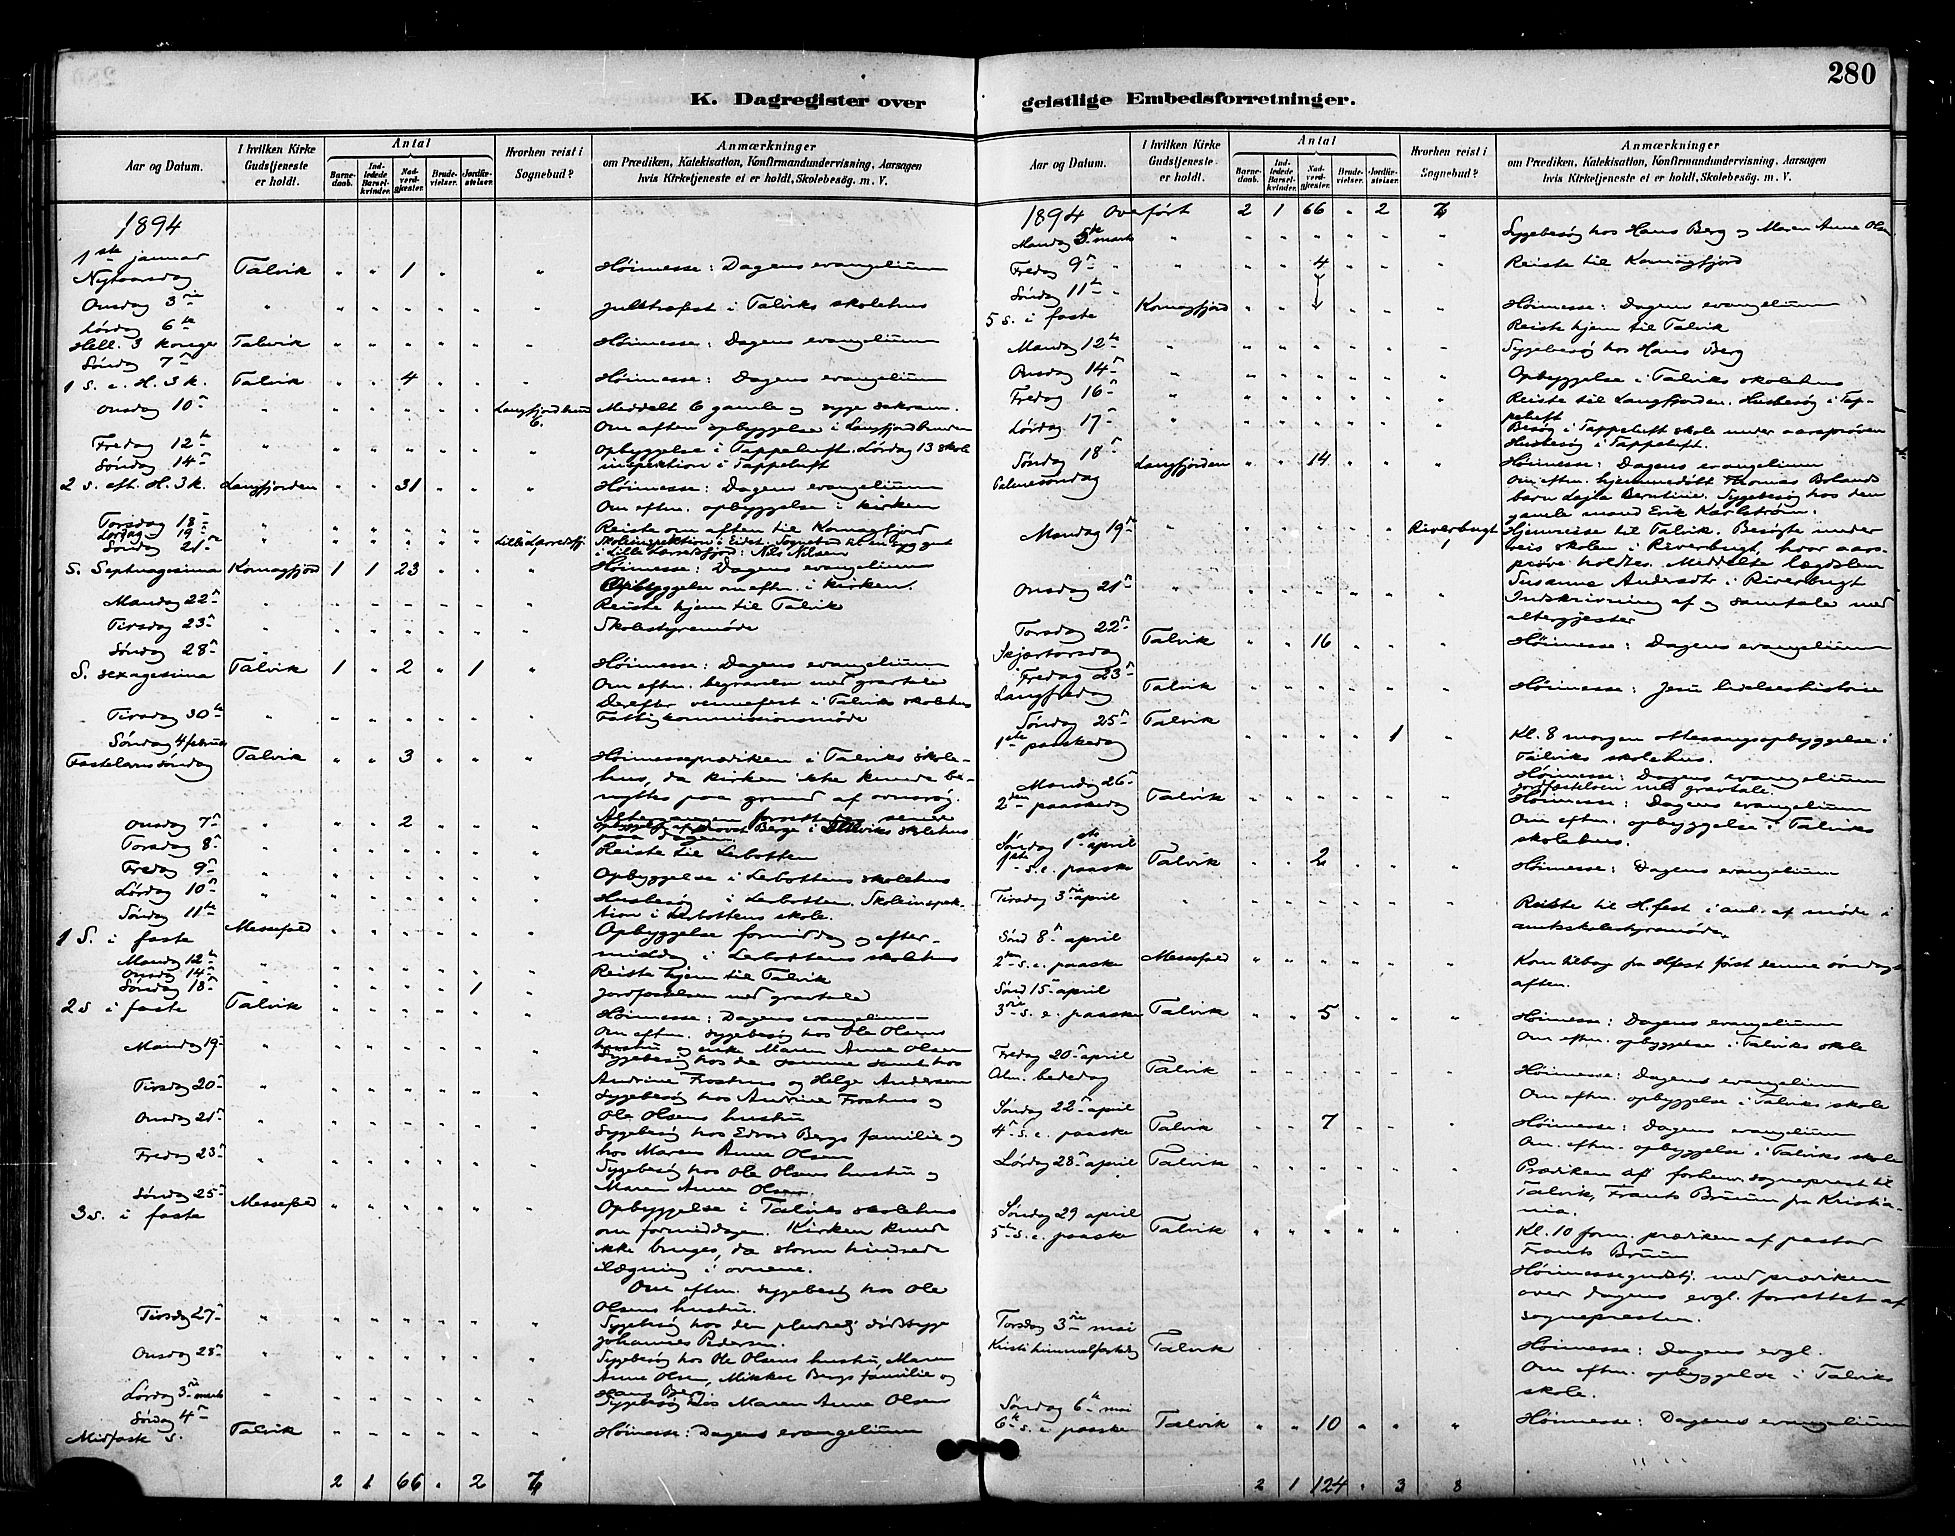 280
K. Dagregister over geistlige Embedsforretninger.
Aar og Datum.
I hvilken Kirke Gudstjeneste er holdt.
Antal
Barnedaab.
Indledede Barselkvinder.
Nadverdgjester.
Brudevielser.
Jordfæstelser.
Hvorhen reist i Sognebud?
Anmærkninger
om Prædiken, Katekisation, Konfirmandundervisning, Aarsagen
hvis Kirketjeneste ei er holdt, Skolebesøg. m. V.
1894
1ste januar
Nytaarsdag Talvik " " 1 " " Høimesse: Dagens evangelium
Onsdag 3die " " " " " Juletræfest i Talviks skolehus
Lørdag 6te
Hell. 3 konger Talvik " " " " " Høimesse: Dagens evangelium
Søndag 7n
1 S. e. H. 3 k. Talvik " " 4 " " Høimesse: Dagens evangelium
Onsdag 10n " " " " " Langfjordbund 6. Meddelt 6 gamle og syge sakram.
Om aften opbyggelse i Langfjordbunden
Fredag 12te " " " " " Opbyggelse i Tappeluft. Lørdag 13 skole
Søndag 14n inspektion i Tappeluft
2 S. eft. H. 3 k. Langfjorden " " 31 " " Høimesse: Dagens evangelium
Om eftm. opbyggelse i kirken
Torsdag 18 " " " " " Reiste om aften til Komagfjord
Lørdag 19 " " " " " Lille Lerresfj. Skoleinspektion i Eidet.
Søndag 21 i Lille Lerresfjord: Nils Nilsen
S. Septuagesima Komagfjord 1 1 23 " " Høimesse: Dagens evangelium
Opbyggelse om eftm. i kirken.
Mandag 22n " " " " " Reiste hjem til Talvik
Tirsdag 23n " " " " " Skolestyremøde
Søndag 28n
S. sexagesima Talvik 1 " 2 " 1 Høimesse: Dagens evangelium
Om eftm. begravelse med gravtale
Derefter vennefest i Talviks skolehus
Tirsdag 30te " " " " " Fattigkommissionsmøde
Søndag 4 februar
Fastelavnssøndag Talvik " " 3 " " Høimesseprædiken i Talviks skole-
hus, da kirken ikke kunde be-
nyttes paa grund af ovnsrøg.
Onsdag 7n " " 2 " " Altergangen forrettedes senere
paa dagen.
Torsdag 8n " " " " " Reiste til Lerbotten
Fredag 9n " " " " " Opbyggelse i Lerbottens skolehus
Lørdag 10n " " " " " Husbesøg i Lerbotten. Skoleinspek-
Søndag 11te tion i Lerbottens skole.
1 S. i faste Messefald " " " " " Opbyggelse formiddag og efter-
middag i Lerbottens skolehus
Mandag 12te " " " " " Reiste hjem til Talvik
Onsdag 14n " " " " 1 Jordfæstelsen med gravtale
Søndag 18n
2 S i faste Talvik " " " " " Høimesse: Dagens evangelium
Om eftm. sygebesøg hos Ole Olsens
hustru og enke Maren Anne Olsen
Mandag 19n " " " " " Sygebesøg hos de samme samt hos
Andrine Frostmo og Helge Andersen
Tirsdag 20n " " " " " Sygebesøg hos Andrine Frostmo og
Ole Olsens hustru
Onsdag 21n " " " " " Sygebesøg hos Edvard Bergs familie og
hos Maren Anne Olsen
Fredag 23n " " " " " Sygebesøg hos Ole Olsens hustru og
Maren Anne Olsen.
Søndag 25n
3 S. i faste Messefald " " " " " Opbyggelse i Talviks skolehus
om formiddagen. Kirken kunde
ikke bruges, da storm hindrede
ilægning i ovnene.
Om eftm. sygebesøg hos Ole
Olsens hustru.
Tirsdag 27n " " " " " Sygebesøg hos den pludselig dødssyge
Johannes Pedersen.
Onsdag 28n " " " " " Sygebesøg hos Ole Olsens hustru, Maren
Anne Olsen, Mikkel Bergs familie og
Hans Berg.
Lørdag 3die marts " " " " " Sygebesøg hos Maren Anne Olsen
Søndag 4n
Midfaste S. Talvik " " " " " Høimesse: Dagens evangelium
2 1 66 " 2 7
Aar og Datum.
I hvilken Kirke Gudstjeneste er holdt.
Antal
Barnedaab.
Indledede Barselkvinder.
Nadverdgjester.
Brudevielser.
Jordfæstelser.
Hvorhen reist i Sognebud?
Anmærkninger
om Prædiken, Katekisation, Konfirmandundervisning, Aarsagen
hvis Kirketjeneste ei er holdt, Skolebesøg. m. V.
1894 Overført 2 1 66 " 2 7
Mandag 5te marts " " " " " Sygebesøg hos Hans Berg og Maren Anne Olsen
Fredag 9n " " " 4 " " Reiste til Komagfjord
Søndag 11te "
5 S. i faste Komagfjord " " " " Høimesse: Dagens evangelium
Reiste hjem til Talvik
Mandag 12te " " " " " Sygebesøg hos Hans Berg
Onsdag 14n " " " " " Opbyggelse i Talviks skolehus
Fredag 16n " " " " " Reiste til Langfjorden. Husbesøg i Tap-
peluft
Lørdag 17n " " " " " Besøg i Tappeluft skole under aarsprøven
Husbesøg i Tappeluft.
Søndag 18n Langfjorden " " 14 " " Høimesse: Dagens evangelium
Palmesøndag Om eftm. hjemmedøbt Thomas Bolands
barn Lajla Berntine. Sygebesøg hos den
gamle mand Erik Karlstrøm.
Mandag 19n " " " " " Riverbugt 1 Hjemreise til Talvik. Besøgte under-
veis skolen i Riverbugt, hvor aars-
prøve holdtes. Meddelte lægdslem
Susanna Andersdtr i Riverbugt
Onsdag 21n " " " " " Indskrivning af og samtale med
altergjester
Torsdag 22n
Skjærtorsdag Talvik " " 16 " " Høimesse: Dagens evangelium
Fredag 23n
Langfredag Talvik " " " " " Høimesse: Jesu lidelseshistorie
Søndag 25n Talvik
1ste paaskedag " " " " 1 Kl. 8 morgen ottesangsopbyggelse i
Talviks skolehus.
Høimesse: Dagens evangelium
Jordfæstelsen med gravtale.
Mandag 26n
2den paaskedag Talvik " " " " " Høimesse: Dagens evangelium
Om eftm. opbyggelse i Talviks
skolehus.
Søndag 1ste april
1ste S. e. paaske Talvik " " 2 " " Høimesse: Dagens evangelium
Tirsdag 3die april " " " " " Reiste til H.fest i anl. af møde i
amtsskolestyremøde
Sønd 8n april
2den S. e. paaske Messefald " " " " " Kom tilbage fra Hfest først denne søndags
aften.
Sønd 15n april
3die S. e. paaske Talvik " " 5 " " Høimesse: Dagens evangelium
Om eftm. opbyggelse i Talviks skole
Fredag 20n april
Alm. bededag Talvik " " " " " Høimesse: Dagens evangelium
Om eftm. opbyggelse i Talviks skole
Søndag 22n april
4n S. e. paaske Talvik " " 7 " " Høimesse: Dagens evangelium
Om. eftm. opbyggelse i Talviks skole
Lørdag 28n april Talvik " " " " " Prædiken af forhenv. sogneprest til
Talvik, Frants Bruun fra Kristia-
nia.
Søndag 29 april
5te S. e. paaske Talvik " " " " " Kl. 10 form. prædiken af pastor
Frants Bruun
Høimessegudstj. med prædiken
over dagens evgl. forrettet af
sognepresten.
Torsdag 3die mai
Kristi himmelfartsdag Talvik " " " " " Høimesse: Dagens evgl.
Om eftm. opbyggelse i Talviks
skole.
Søndag 6te mai
6te S. e. paaske Talvik " " 10 " " Høimesse: Dagens evangelium
2 1 124 " 3 8